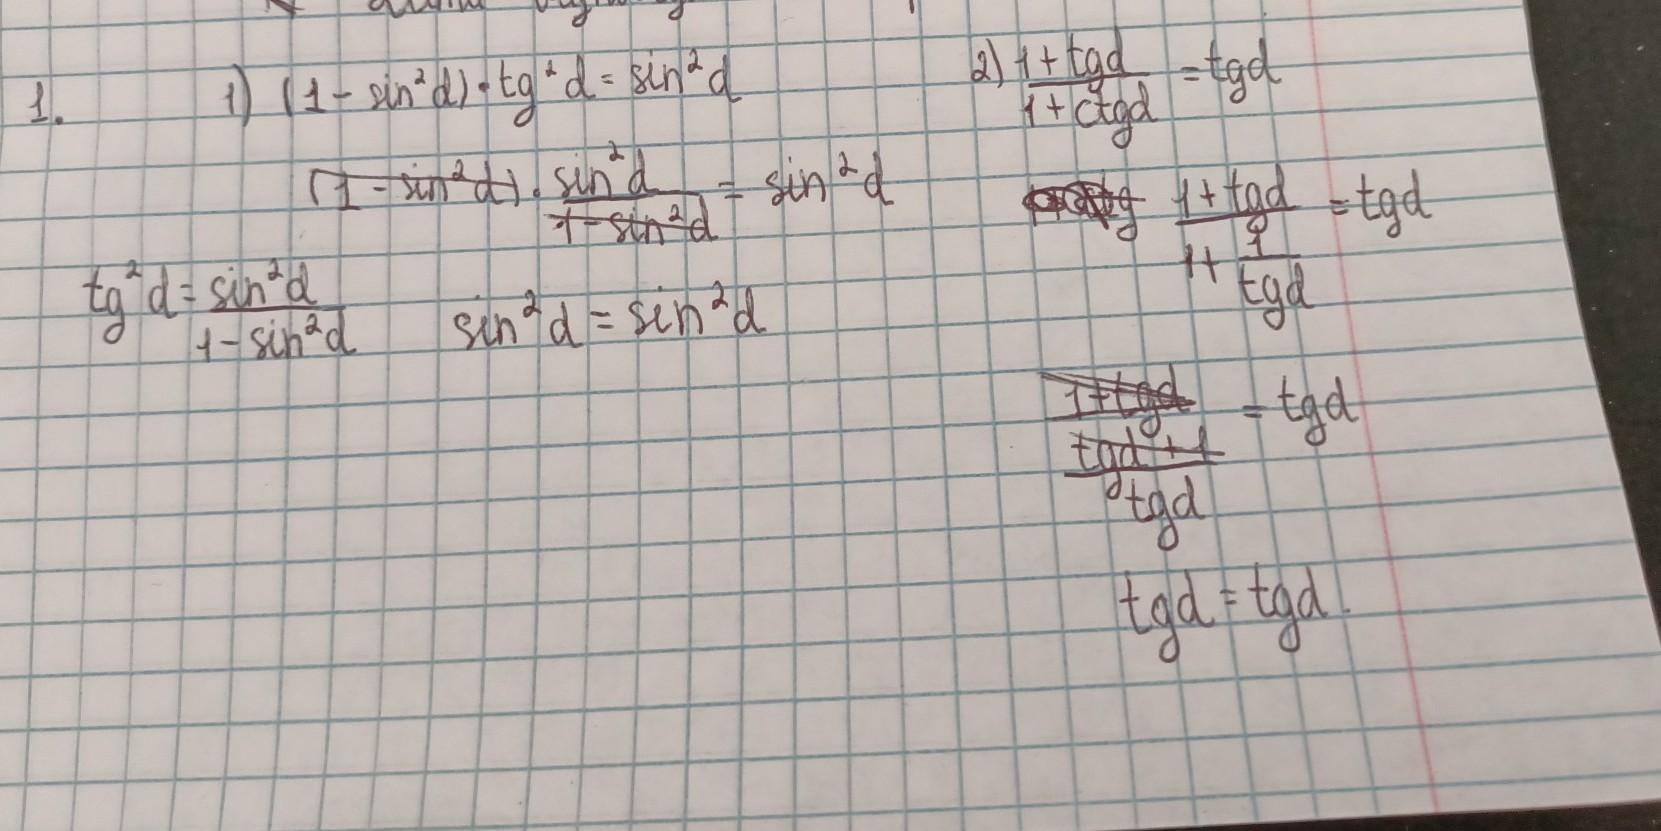 1. 1) (1 - sin²d) · tg²d = sin²d
(1 - sin²d) · sin²d / 1 - sin²d = sin²d
tg²d = sin²d / 1 - sin²d
sin²d = sin²d
2) 1 + tgd / 1 + ctgd = tgd
1 + tgd / 1 + 1 / tgd = tgd
1 + tgd / tgd + 1 / tgd = tgd
tgd = tgd.